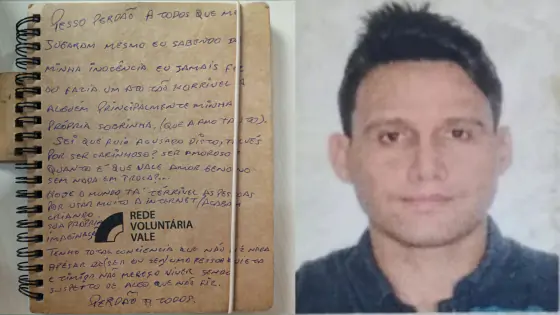 PESSO PERDÃO A TODOS QUE ME
JUGARAM MESMO EU SABENDO DA
MINHA INOCÊNCIA EU JAMAIS FIZ
OU FARIA UM ATO TÃO HORRIVEL A
ALGUÉM PRINCIPALMENTE MINHA
PRÓPRIA SOBRINHA. (QUE A AMO TANTO).
SEI QUE FUI ACUSADO DISTO, TALVÉS
POR SER CARINHOSO? SER AMOROSO
QUANTO É QUE VALE AMOR
SEM NADA EM TROCA?...
HOJE O MUNDO TÁ TERRÍVEL AS PESSOAS
POR USAR MUITO A INTERNET/ACABAM
CRIANDO
SUA PRÓPRIA
IMAGINAÇÃO
REDE
VOLUNTÁRIA
VALE
TENHO TOTAL CONCIÊNCIA QUE NÃO NADA
APESAR DE EU SER UMA PESSOA QUIETA
E TÍMIDA NÃO MEREÇO VIVER SENDO
SUSPEITO DE ALGO QUE NÃO FIZ.
PERDÃO A TODOS.